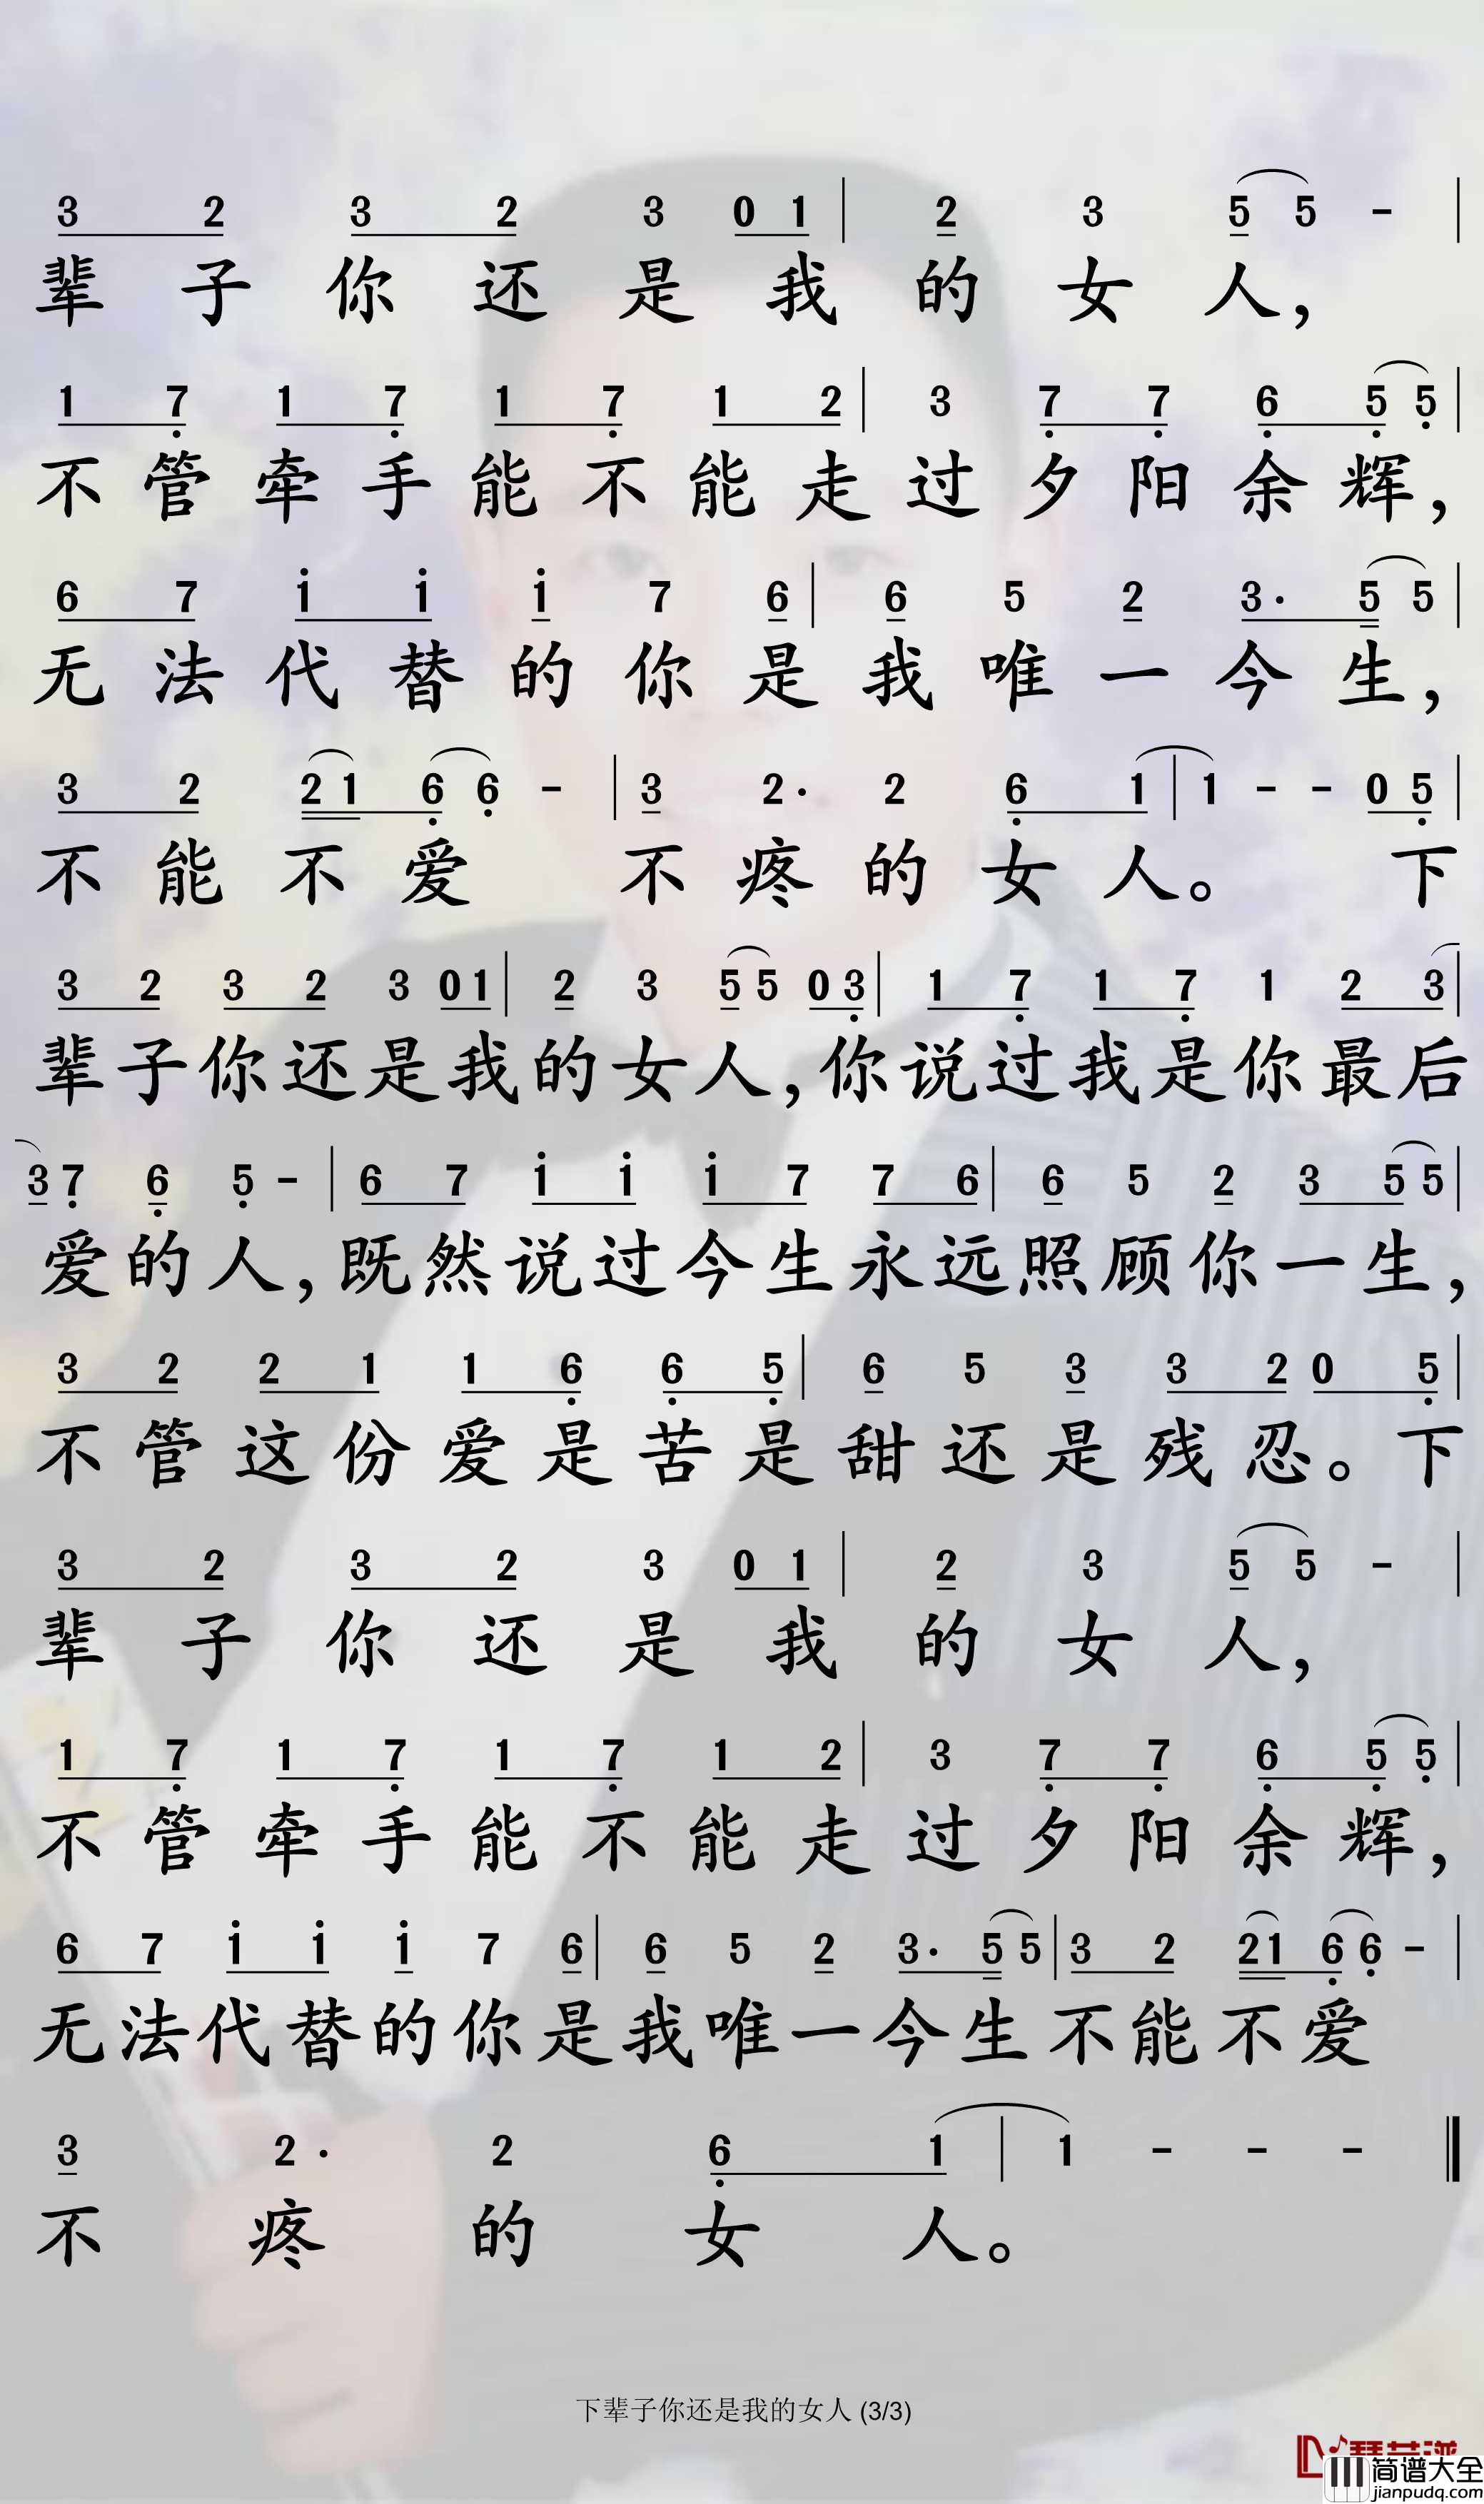 3 2 3 2 3 0 1 | 2 3 5 5 - |
辈子你还是我的女人,
1 7 1 7 1 7 1 2 | 3 7 7 6 5 5 |
不管牵手能不能走过夕阳余辉,
6 7 i i i 7 6 | 6 5 2 3· 5 5 |
无法代替的你是我唯一今生,
3 2 2 1 6 6 - | 3 2· 2 6 1 | 1 - - 0 5 |
不能不爱 不疼的女人。 下
3 2 3 2 3 0 1 | 2 3 5 5 0 3 | 1 7 1 7 1 2 3 |
辈子你还是我的女人,你说过我是你最后
3 7 6 5 - | 6 7 i i i 7 7 6 | 6 5 2 3 5 5 |
爱的人,既然说过今生永远照顾你一生,
3 2 2 1 1 6 6 5 | 6 5 3 3 2 0 5 |
不管这份爱是苦是甜还是残忍。下
3 2 3 2 3 0 1 | 2 3 5 5 - |
辈子你还是我的女人,
1 7 1 7 1 7 1 2 | 3 7 7 6 5 5 |
不管牵手能不能走过夕阳余辉,
6 7 i i i 7 6 | 6 5 2 3· 5 5 | 3 2 2 1 6 6 - |
无法代替的你是我唯一今生不能不爱
3 2· 2 6 1 | 1 - - -
不疼的女人。
下辈子你还是我的女人 (3/3)
简谱大全
jianpudq.com